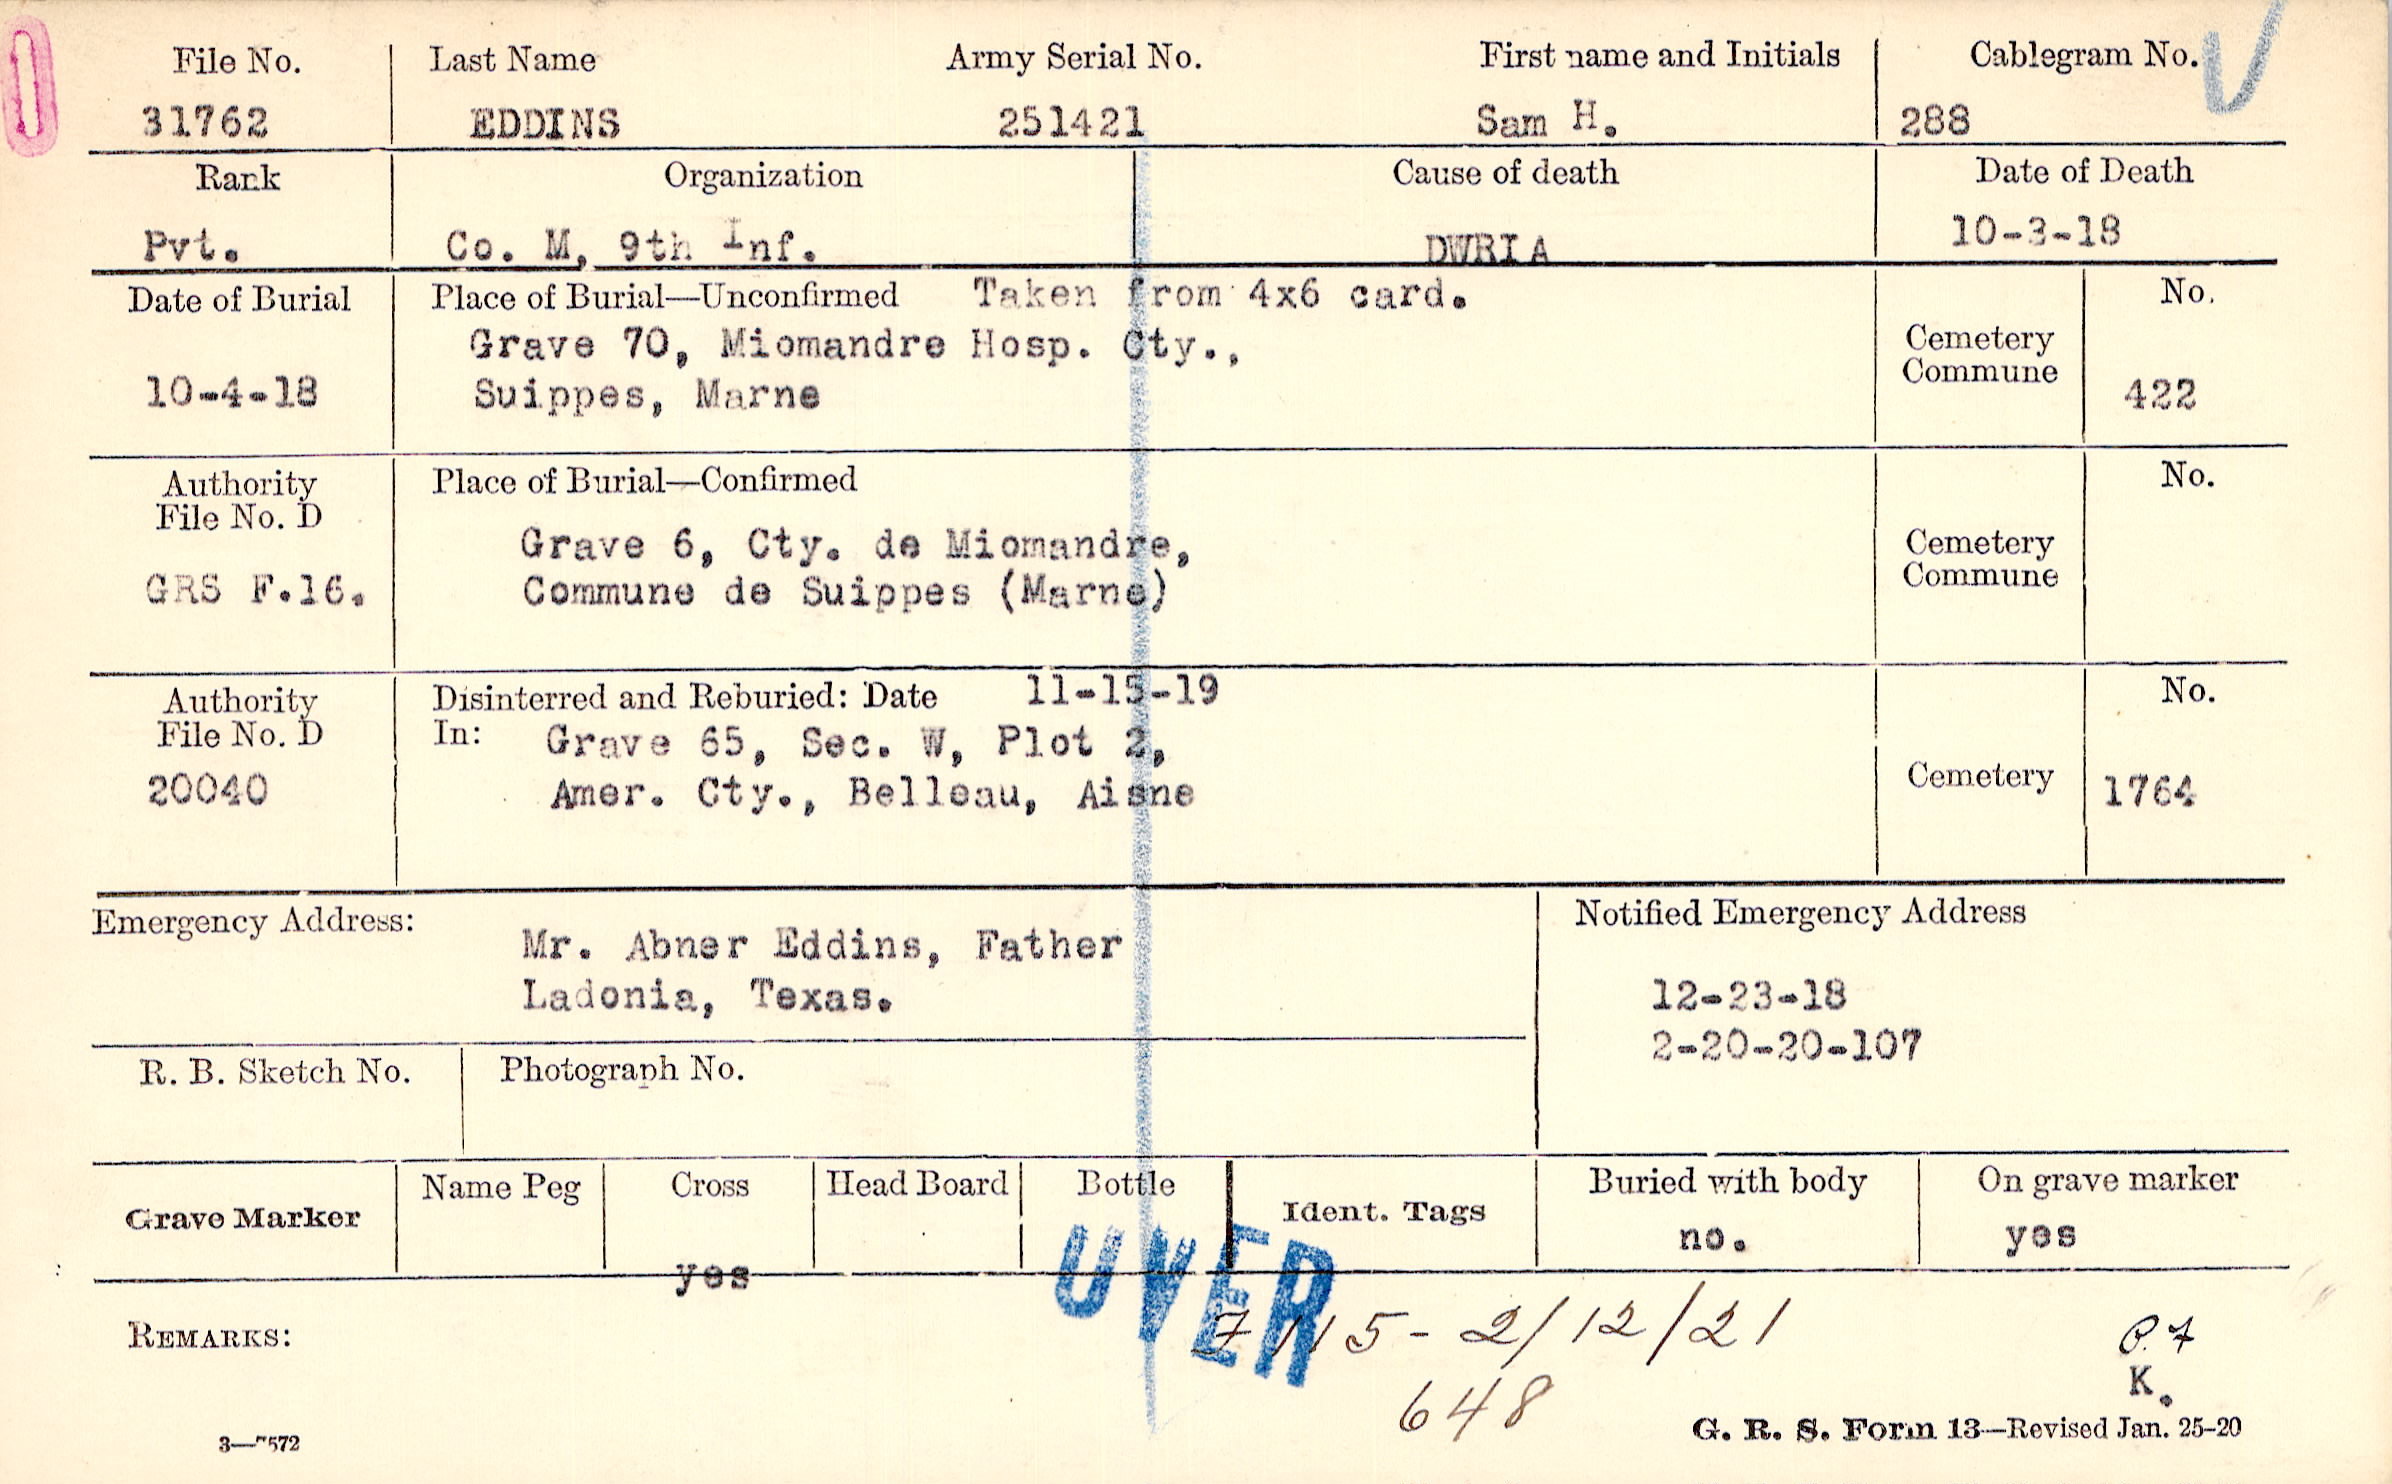 File No. Last Name Army Serial No. First name and Initials Cablegram No.
31762 EDDINS 251421 Sam H. 288
Rank Organization Cause of death Date of Death
Pvt. Co. M, 9th Inf. DWRIA 10-3-18
Date of Burial Place of Burial—Unconfirmed Taken from 4x6 card. No.
Grave 70, Miomandre Hosp. Cty., Cemetery
Commune
10-4-18 Suippes, Marne 422
Authority Place of Burial—Confirmed No.
File No. D
Grave 6, Cty. de Miomandre, Cemetery
GRS F.16. Commune de Suippes (Marne) Commune
Authority Disinterred and Reburied: Date 11-15-19 No.
File No. D In: Grave 65, Sec. W, Plot 2,
20040 Amer. Cty., Belleau, Aisne Cemetery 1764
Emergency Address: Notified Emergency Address
Mr. Abner Eddins, Father
Ladonia, Texas. 12-23-18
2-20-20-107
R. B. Sketch No. Photograph No.
Grave Marker Name Peg Cross Head Board Bottle Ident. Tags Buried with body On grave marker
yes no. yes
OVER
REMARKS: 7115-2/12/21
K.
648
3—7572 G. R. S. Form 13—Revised Jan. 25-20